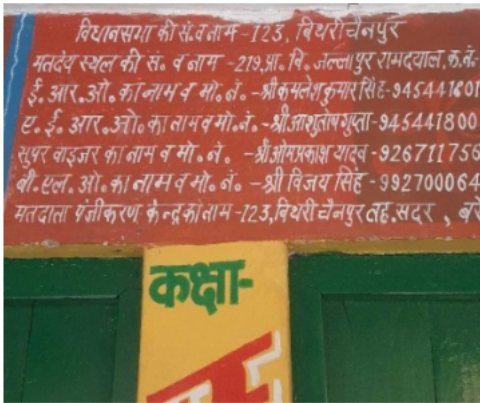 विधानसभा की सं. व नाम - 123, बिथरीचैनपुर
मतदेय स्थल की सं. व नाम - 219, प्रा. वि. जल्लापुर रामदयाल, क.नं.
ई. आर. ओ. का नाम व मो. नं. - श्री कमलेश कुमार सिंह - 945441601
ए. ई. आर. ओ. का नाम व मो. नं. - श्री आशुतोष गुप्ता - 945441800
सुपर वाइजर का नाम व मो. नं. - श्री ओमप्रकाश यादव - 926711756
बी. एल. ओ. का नाम व मो. नं. - श्री विजय सिंह - 992700064
मतदाता पंजीकरण केन्द्र का नाम - 123, बिथरी चैनपुर तह. सदर, बरे
कक्षा-